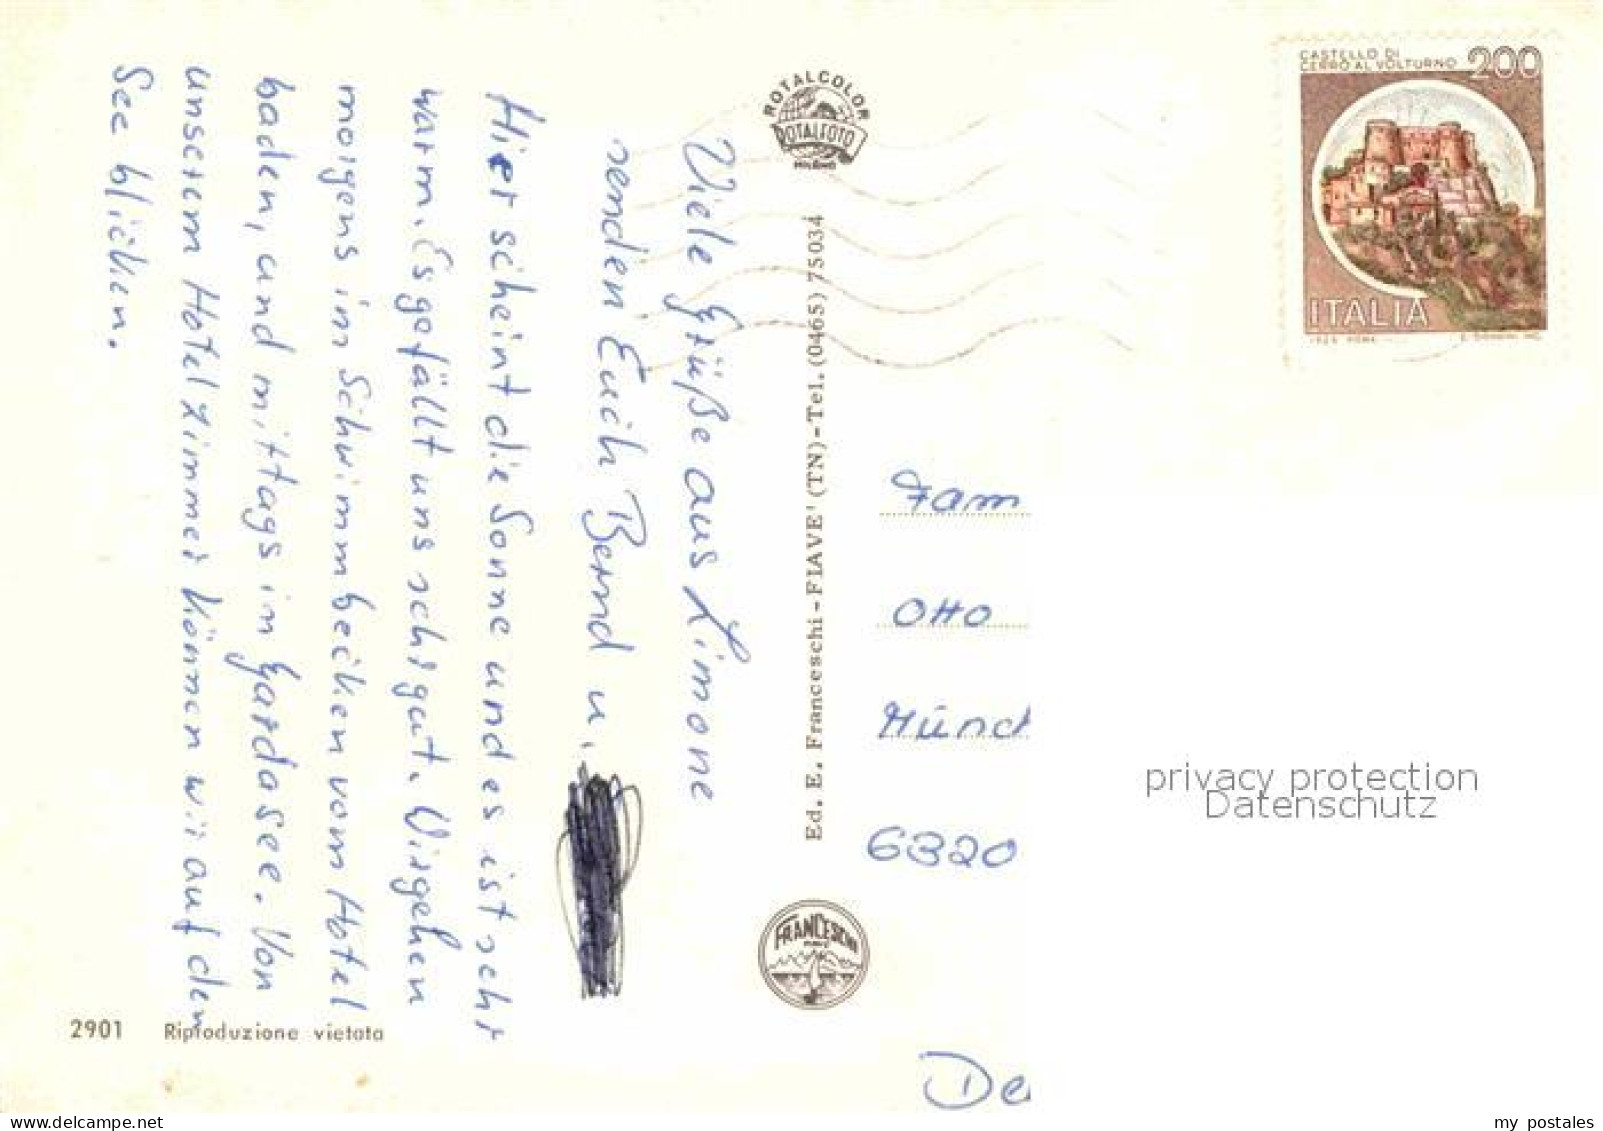 Viele Grüße aus Limone
senden Euch Bernd u.
Hier scheint die Sonne und es ist sehr
warm. Es gefällt uns sehr gut. Wir gehen
morgens im Schwimmbecken vom Hotel
baden, und mittags im Gardasee. Von
unserem Hotelzimmer können wir auf den
See blicken.
2901 Riproduzione vietata
ROTALCOLOR
ROTALFOTO
MILANO
Ed. E. Franceschi - FIAVE' (TN) - Tel. (0465) 75034
FRANCESCHI
CASTELLO DI
CERRO AL VOLTURNO 200
ITALIA
Fam
Otto
Münch
6320
De
privacy protection
Datenschutz
my postales